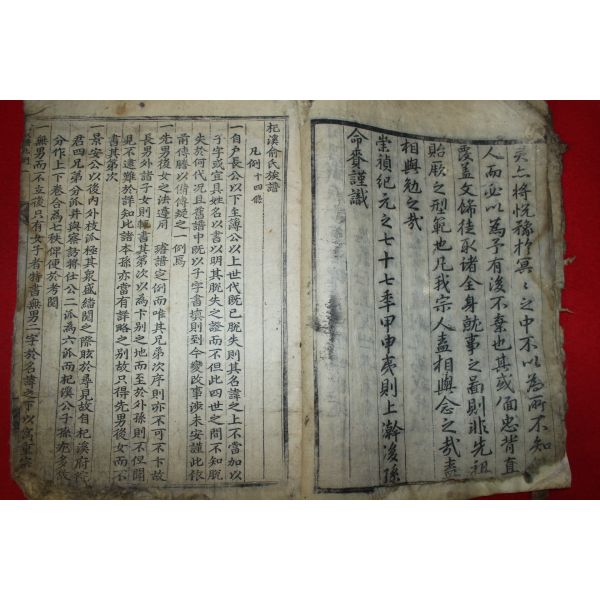 矣亦將悅豫於冥〻之中不以為所不知
人而必以為予有後不棄也其或面忠背直
覆盖文飾徒取諸全身就事之啚則非先祖
貽厥之型範也凡我宗人盍相與念之哉盍
相與勉之哉
崇禎紀元之七十七年甲申夷則上澣後孫
命賚謹識
杞溪俞氏族譜
凡例十四條
一自戶長公以下至簿公以上世代既已脫失則其名諱之上不當加以
子字或宜具姓名以書以明其脫失之證而不但此四世之間不知脫
失於何代况且舊譜中既以子字書填則到今變改事涉未安謹此依
前傳謄以備傳疑之一例焉
一先男後女之法遵用 璿譜定例而唯其兄弟次序則亦不可不卞故
長男外諸子女則輒書其第次以為卞别之地而至於外孫則不但聞
見不逮難於詳知此諸本孫亦當有詳略之别故只得先男後女而不
書其第次
一景安公以後内外枝派極其衆盛緒閱之際眩於尋見故自杞溪府院
君四兄弟分派并與察訪將仕公二派為六派而杞溪公子孫尤多故
分作上下卷合為七秩俾便於考閱
無男而不立後只有女子者特書無男二字於名諱之下以